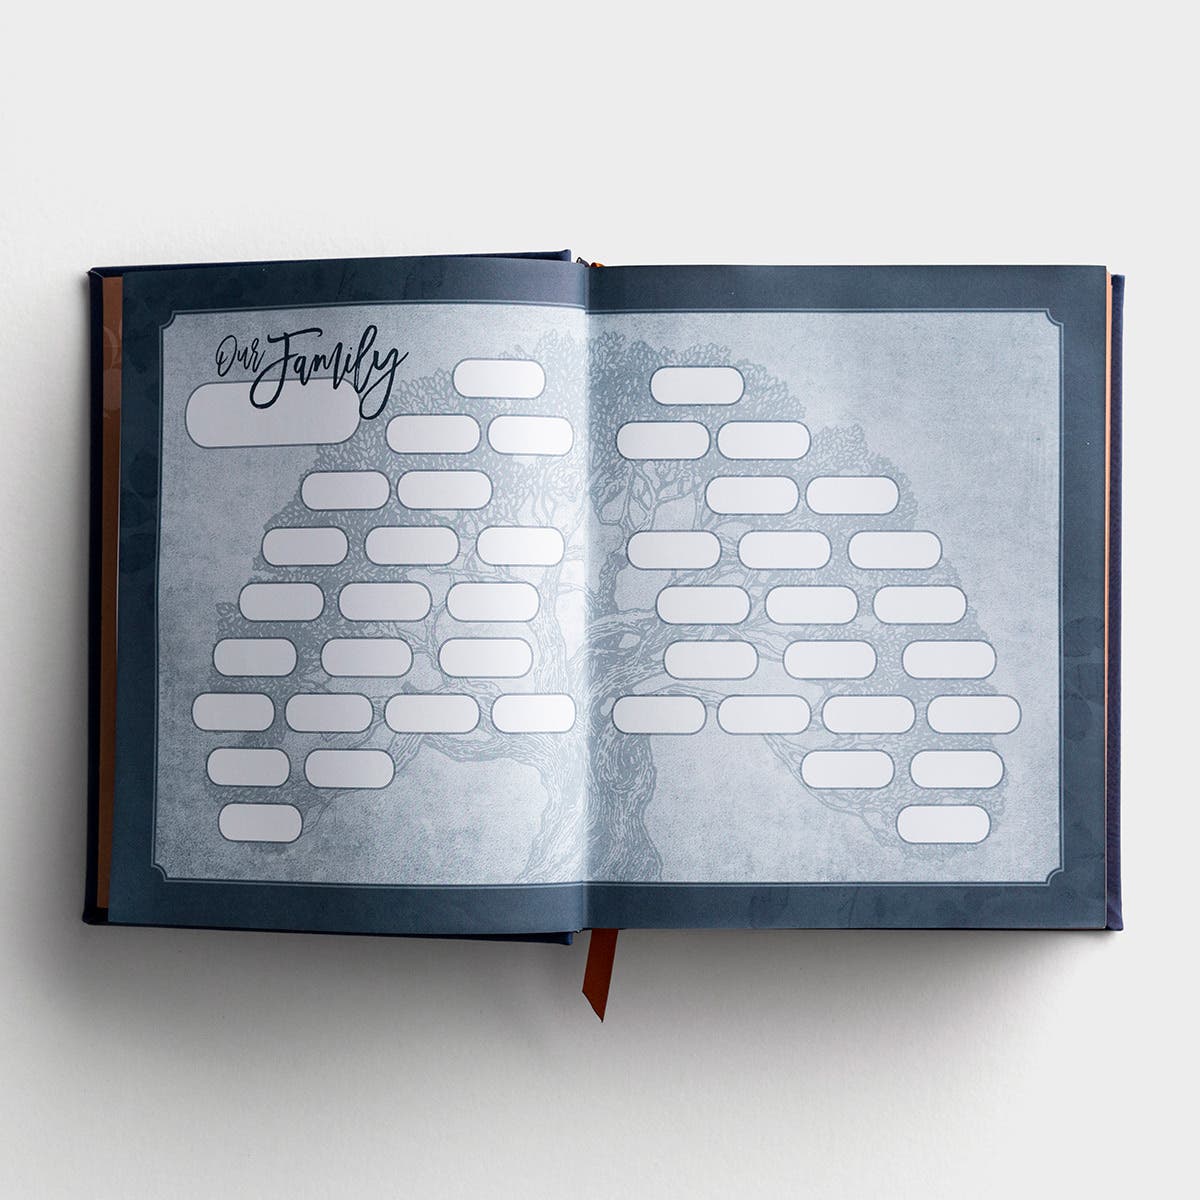 Our Family